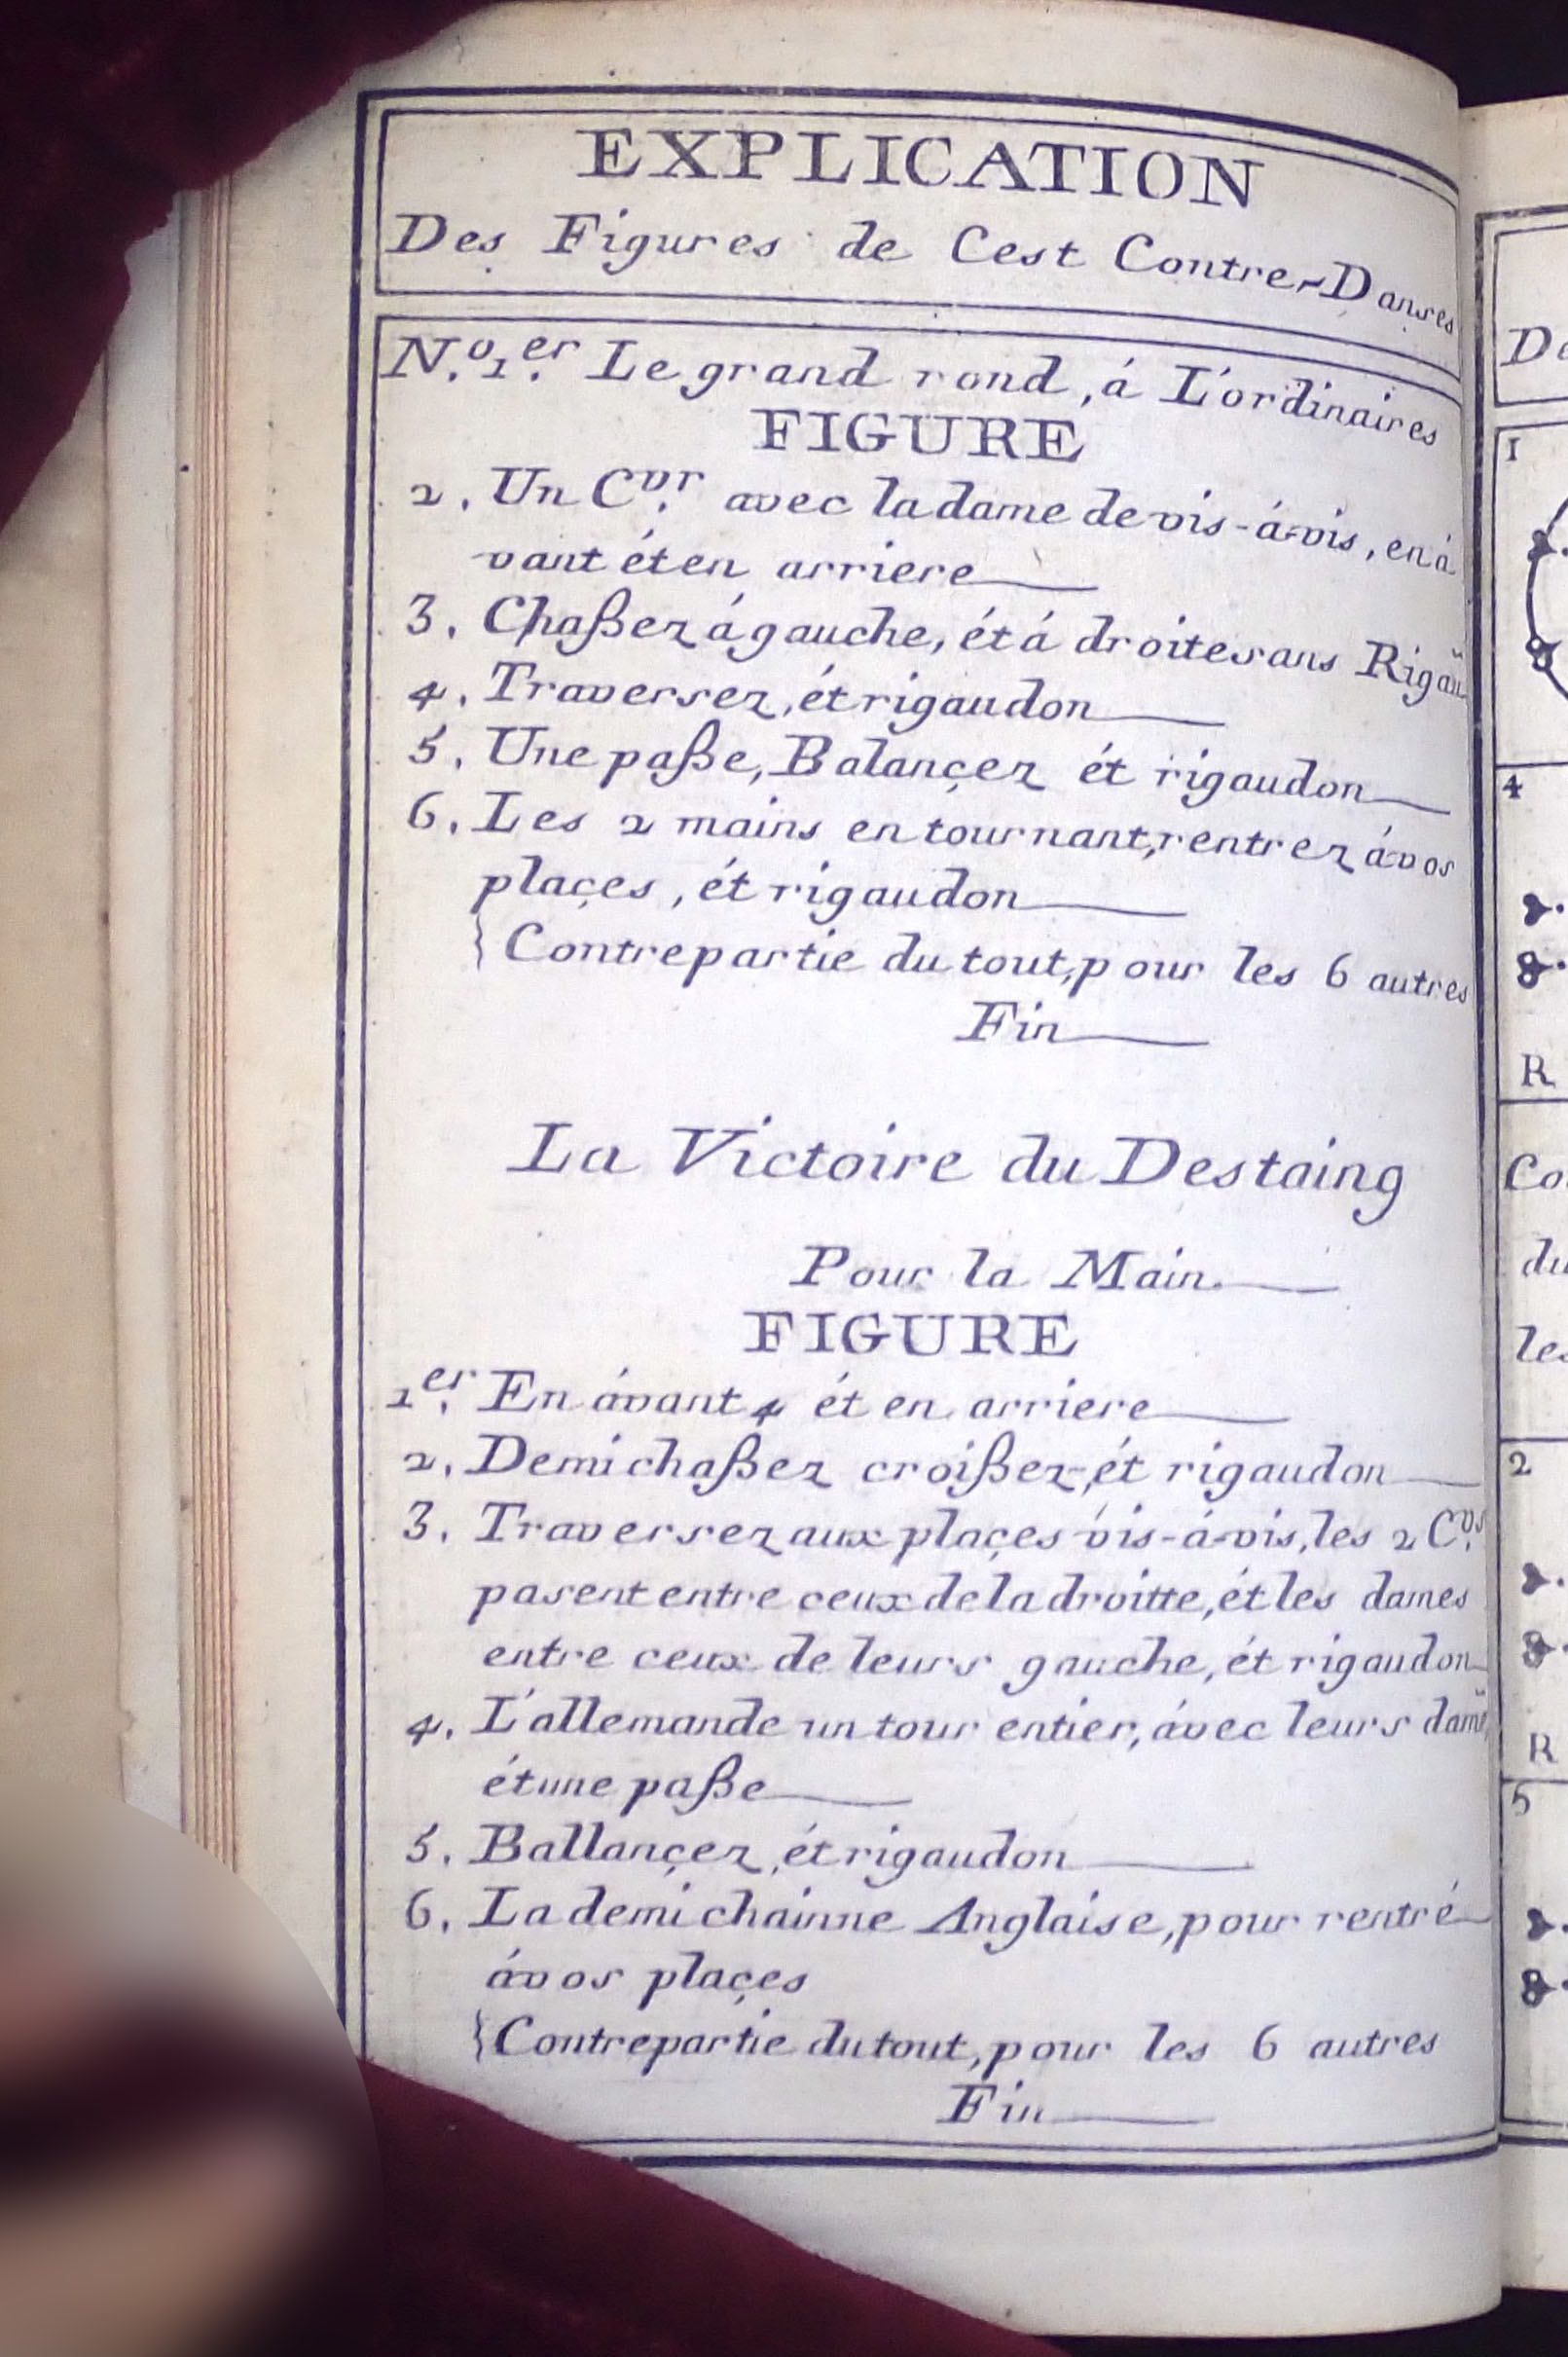 EXPLICATION
Des Figures de Cest Contre-Danses
N.º 1.er Le grand rond, á L'ordinaires
FIGURE
2. Un C.vr avec la dame de vis-á-vis, en á
vant ét en arriere
3. Chaßez á gauche, ét á droite sans Rigau
4. Traversez, ét rigaudon
5. Une paße, Balançez ét rigaudon
6. Les 2 mains en tournant, rentrez á vos
plaçes, ét rigaudon
{Contrepartie du tout, pour les 6 autres
Fin
La Victoire du Destaing
Pour la Main.
FIGURE
1.er En ávant 4 ét en arriere
2. Demi chaßez croißez, ét rigaudon
3. Traversez aux plaçes vis-á-vis, les 2 C.vrs
pasent entre ceux de la droitte, ét les dames
entre ceux de leurs gauche, ét rigaudon
4. L'allemande un tour entier, ávec leurs dam
ét une paße
5. Ballançez, ét rigaudon
6. La demi chainne Anglaise, pour rentré
á vos plaçes
{Contrepartie du tout, pour les 6 autres
Fin
1
4
R
Co
du
les
2
R
5